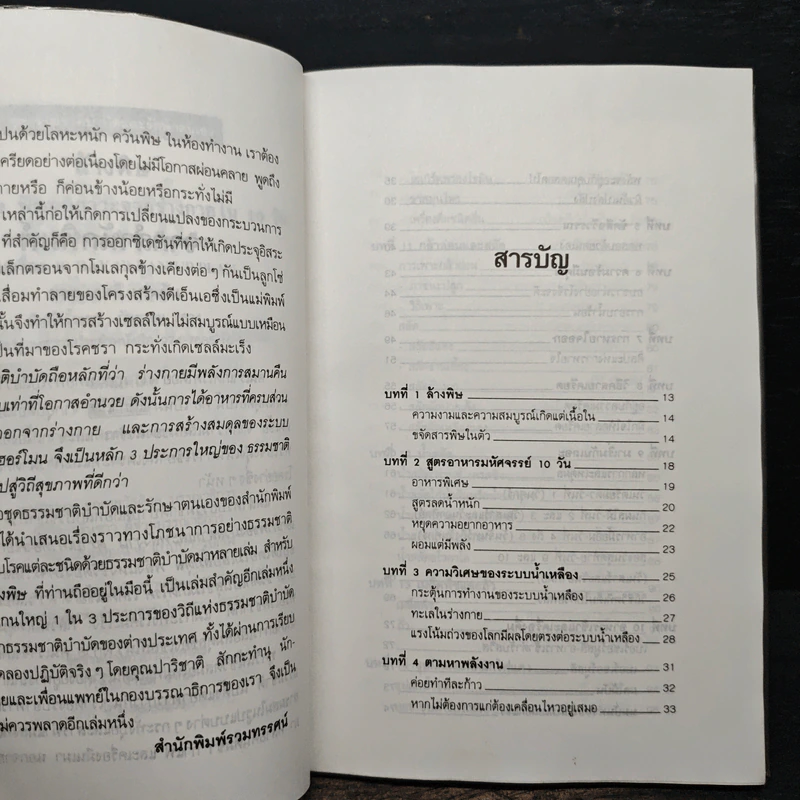 ปนด้วยโลหะหนัก ควันพิษ ในห้องทำงาน เราต้อง
ครียดอย่างต่อเนื่องโดยไม่มีโอกาสผ่อนคลาย พูดถึง
กายหรือ ก็ค่อนข้างน้อยหรือกระทั่งไม่มี
เหล่านี้ก่อให้เกิดการเปลี่ยนแปลงของกระบวนการ
ที่สำคัญก็คือ การออกซิเดชันที่ทำให้เกิดประจุอิสระ
เล็กตรอนจากโมเลกุลข้างเคียงต่อๆ กันเป็นลูกโซ่
สื่อมทำลายของโครงสร้างดีเอ็นเอซึ่งเป็นแม่พิมพ์
นั้นจึงทำให้การสร้างเซลล์ใหม่ไม่สมบูรณ์แบบเหมือน
ป็นที่มาของโรคชรา กระทั่งเกิดเซลล์มะเร็ง
ติบำบัดถือหลักที่ว่า ร่างกายมีพลังการสมานคืน
บเท่าที่โอกาสอำนวย ดังนั้นการได้อาหารที่ครบส่วน
ออกจากร่างกาย และการสร้างสมดุลของระบบ
ฮอร์โมน จึงเป็นหลัก 3 ประการใหญ่ของ ธรรมชาติ
ปสู่วิถีสุขภาพที่ดีกว่า
อชุดธรรมชาติบำบัดและรักษาตนเองของสำนักพิมพ์
ได้นำเสนอเรื่องราวทางโภชนาการอย่างธรรมชาติ
บโรคแต่ละชนิดด้วยธรรมชาติบำบัดมาหลายเล่ม สำหรับ
งพิษ ที่ท่านถืออยู่ในมือนี้ เป็นเล่มสำคัญอีกเล่มหนึ่ง
กนใหญ่ 1 ใน 3 ประการของวิถีแห่งธรรมชาติบำบัด
กธรรมชาติบำบัดของต่างประเทศ ทั้งได้ผ่านการเรียบ
ดลองปฏิบัติจริงๆ โดยคุณปาริชาติ สักกะทำนุ นัก-
ยและเพื่อนแพทย์ในกองบรรณาธิการของเรา จึงเป็น
ม่ควรพลาดอีกเล่มหนึ่ง
สำนักพิมพ์รวมทรรศน์
สารบัญ
บทที่ 1 ล้างพิษ 13
ความงามและความสมบูรณ์เกิดแต่เนื้อใน 14
ขจัดสารพิษในตัว 14
บทที่ 2 สูตรอาหารมหัศจรรย์ 10 วัน 18
อาหารพิเศษ 19
สูตรลดน้ำหนัก 20
หยุดความอยากอาหาร 22
ผอมแต่มีพลัง 23
บทที่ 3 ความวิเศษของระบบน้ำเหลือง 25
กระตุ้นการทำงานของระบบน้ำเหลือง 26
ทะเลในร่างกาย 27
แรงโน้มถ่วงของโลกมีผลโดยตรงต่อระบบน้ำเหลือง 28
บทที่ 4 ตามหาพลังงาน 31
ค่อยทำทีละก้าว 32
หากไม่ต้องการแก่ต้องเคลื่อนไหวอยู่เสมอ 33